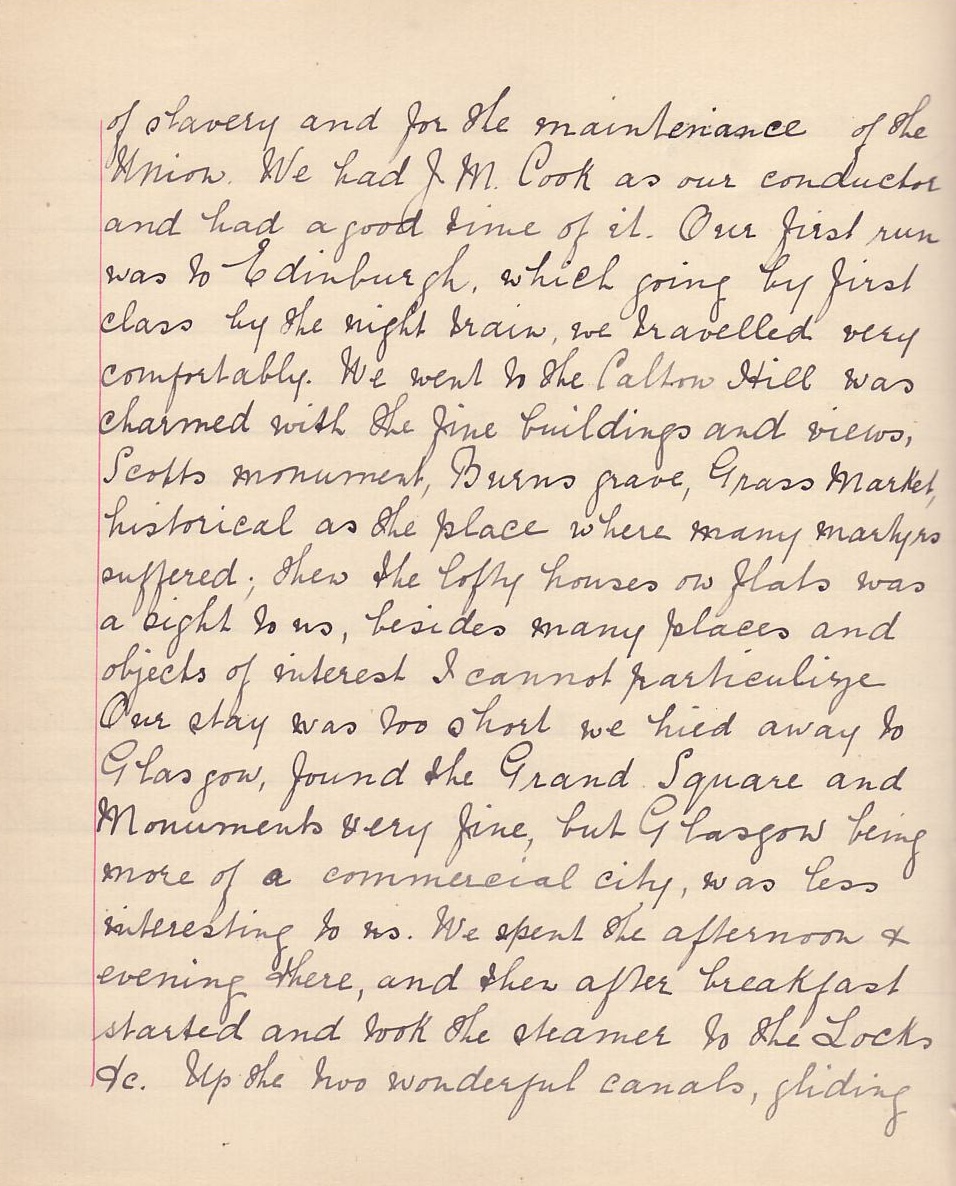 of slavery and for the maintenance of the
Union. We had J. M. Cook as our conductor
and had a good time of it. Our first run
was to Edinburgh, which going by first
class by the night train, we travelled very
comfortably. We went to the Calton Hill was
charmed with the fine buildings and views,
Scotts monument, Burns grave, Grass Market,
historical as the place where many martyrs
suffered; then the lofty houses on flats was
a sight to us, besides many places and
objects of interest I cannot particulirze
Our stay was too short we hied away to
Glasgow, found the Grand Square and
Monuments very fine, but Glasgow being
more of a commercial city, was less
interesting to us. We spent the afternoon &
evening there, and then after breakfast
started and took the steamer to the Locks
&c. Up the two wonderful canals, gliding